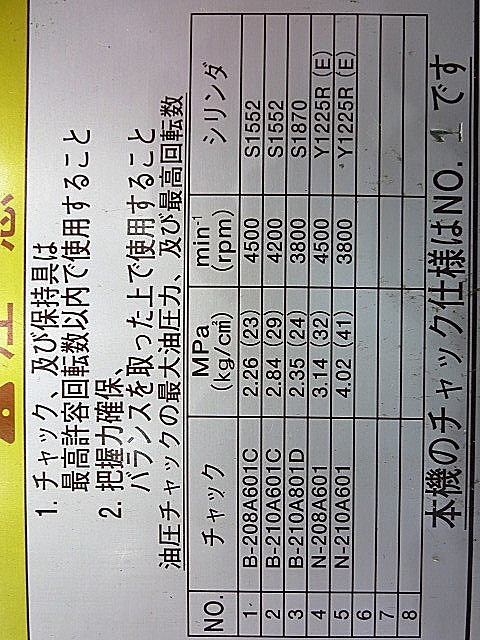 注意
1. チャック、及び保持具は
最高許容回転数以内で使用すること
2. 把握力確保、
バランスを取った上で使用すること
油圧チャックの最大油圧力、及び最高回転数
NO. チャック MPa (kg/c㎡) min⁻¹ (rpm) シリンダ
1 B-208A601C 2.26 (23) 4500 S1552
2 B-210A601C 2.84 (29) 4200 S1552
3 B-210A801D 2.35 (24) 3800 S1870
4 N-208A601 3.14 (32) 4500 Y1225R (E)
5 N-210A601 4.02 (41) 3800 Y1225R (E)
6
7
8
本機のチャック仕様はNO. 1 です